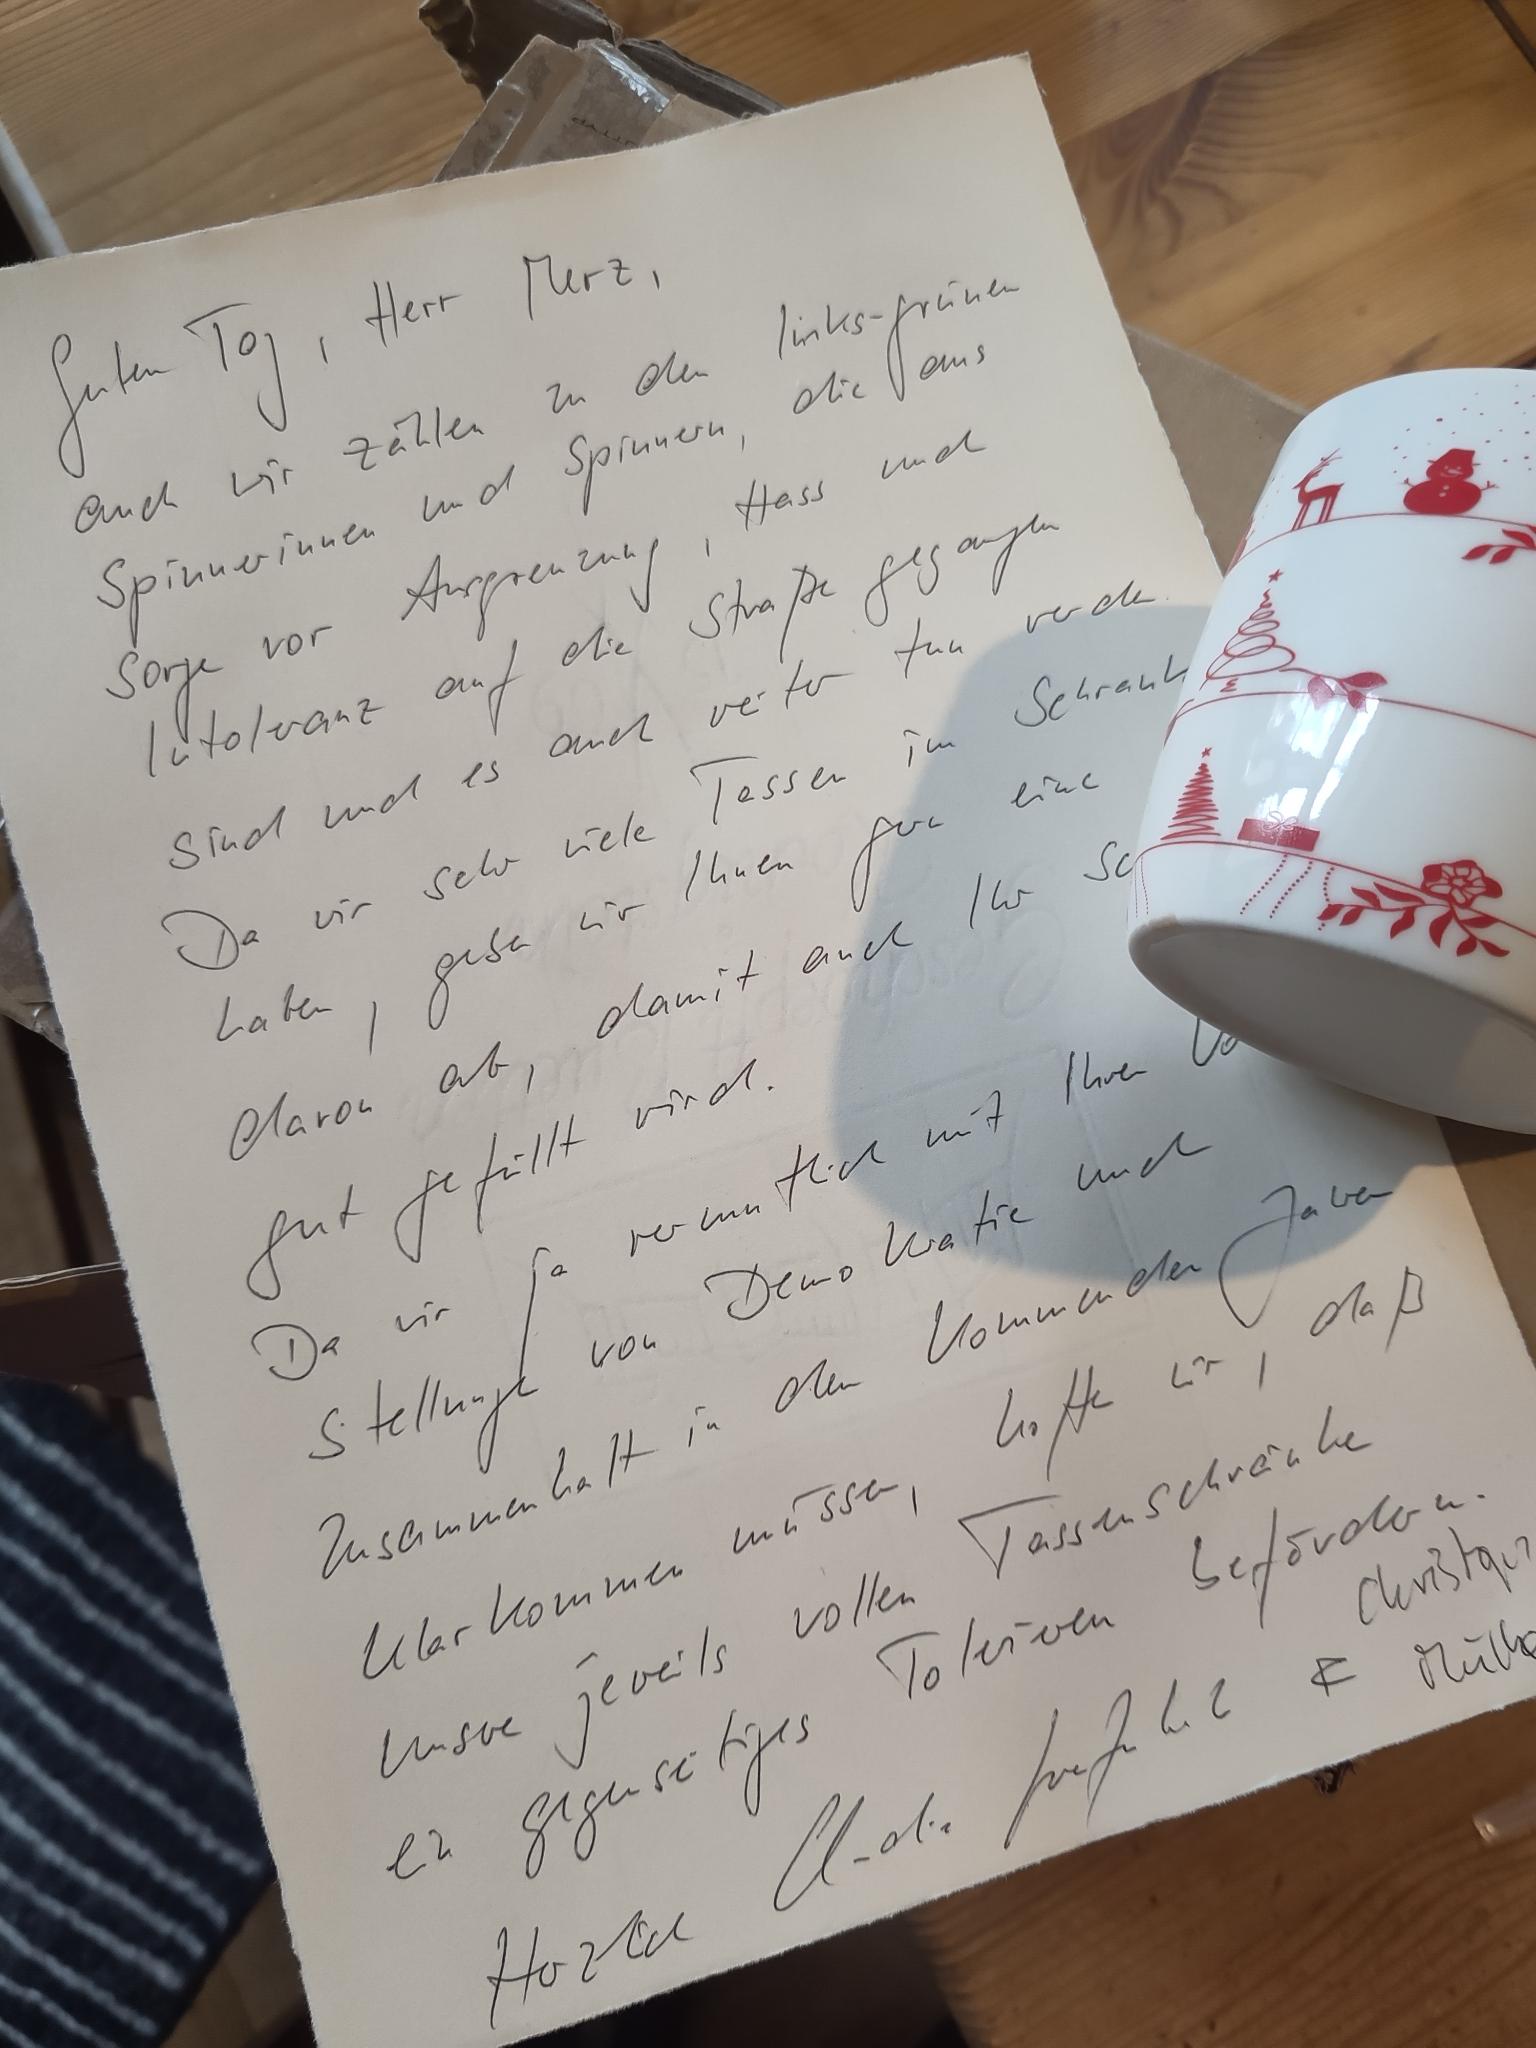 Guten Tag, Herr Merz,
auch wir zählen zu den links-grünen
Spinnerinnen und Spinnern, die aus
Sorge vor Ausgrenzung, Hass und
Intoleranz auf die Straße gegangen
sind und es auch weiter tun werden.
Da wir sehr viele Tassen im Schrank
haben, geben wir Ihnen gern eine
davon ab, damit auch Ihr Sc
gut gefüllt wird.
Da wir ja vermutlich mit Ihren Vo
Stellungen von Demokratie und
Zusammenhalt in den kommenden Jahren
klarkommen müssen, hoffe wir, daß
unsere jeweils vollen Tassenschränke
ein gegenseitiges Tolerieren befördern.
Herzlich Claudia &